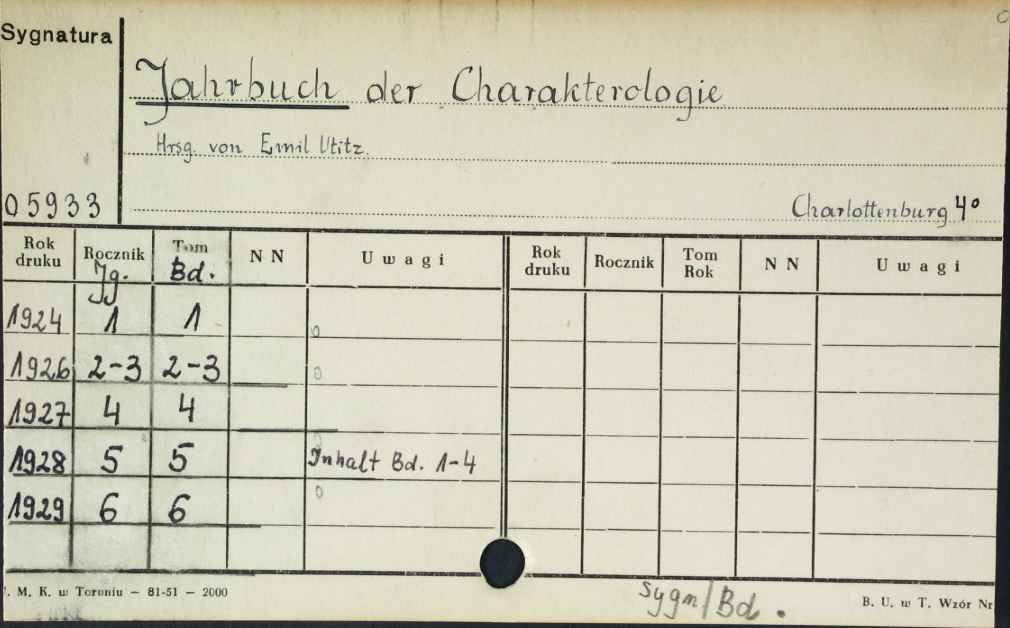 Sygnatura
Jahrbuch der Charakterologie
Hrsg. von Emil Utitz.
05933
Charlottenburg 4°
Rok druku Rocznik Jg. Tom Bd. N N Uwagi Rok druku Rocznik Tom Rok N N Uwagi
1924 1 1
1926 2-3 2-3
1927 4 4
1928 5 5 Inhalt Bd. 1-4
1929 6 6
M. K. w Toruniu – 81-51 – 2000
Sygn/Bd.
B. U. w T. Wzór Nr